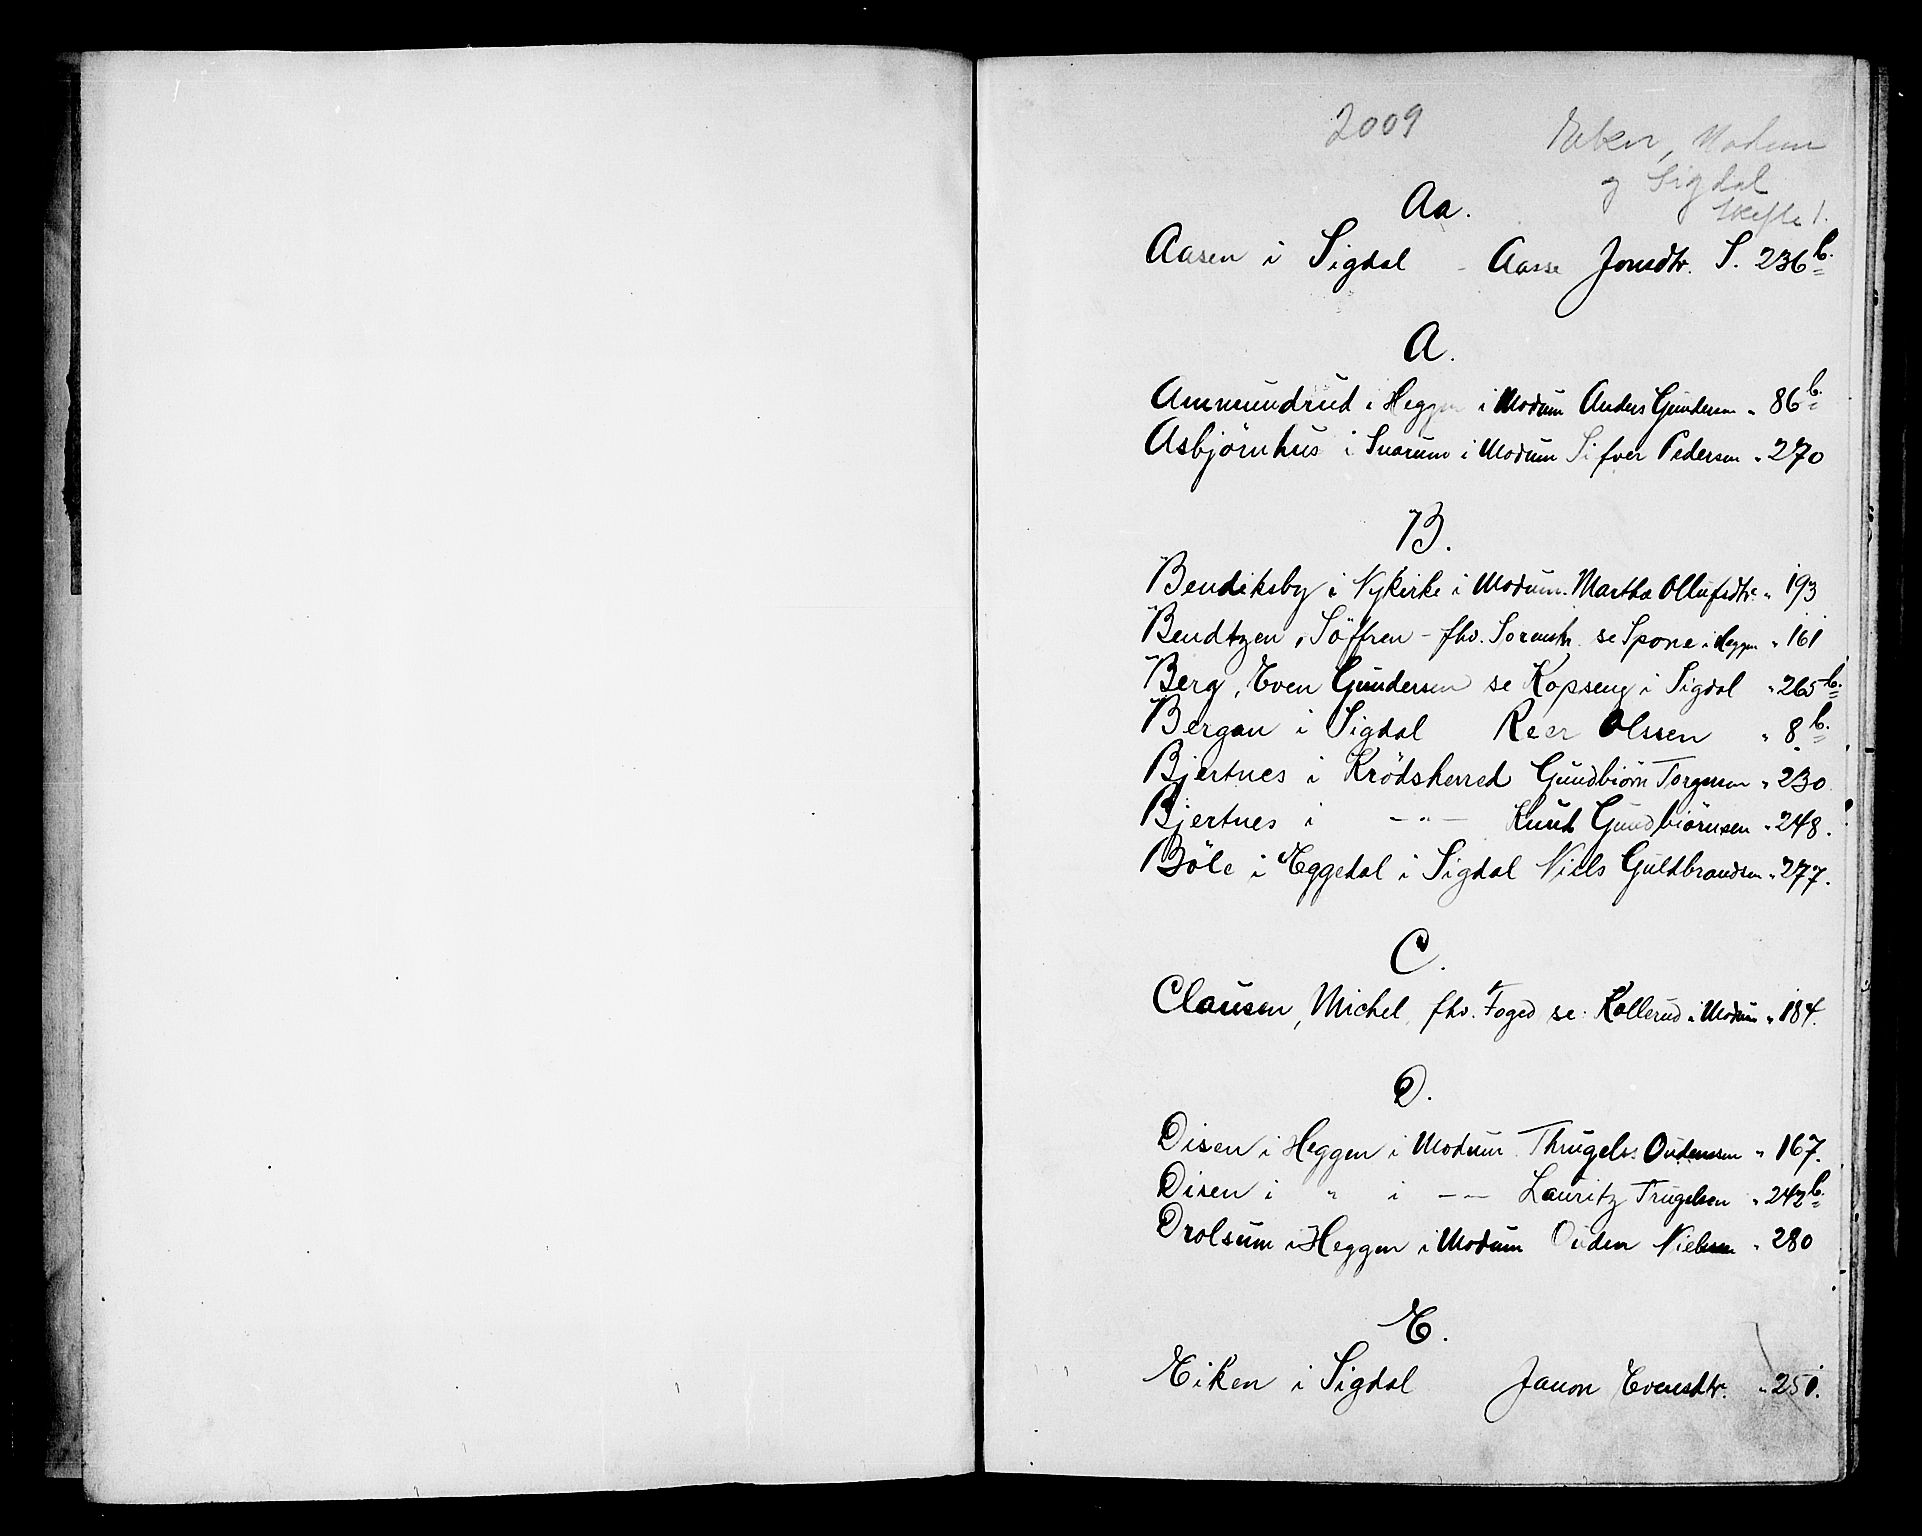 2009
Eker, Modum
og Sigdal
Skifte 1.
Aa.
Aasen i Sigdal - Aasse Jonsdtr. S. 236 b.
A.
Ammundrud i Heggen i Modum Anders Gundersen " 86 b.
Asbjörnhus i Snarum i Modum Sifver Pedersen " 270
B.
Bendiksby i Nykirke i Modum. Martha Ollufsdtr. " 193
Bendtzen, Söffren - fhv. Sorenskr. se Spone i Heggen " 161
Berg, Even Gundersen se Kopseng i Sigdal " 265 b.
Bergan i Sigdal Reer Olssen " 8 b.
Bjertnes i Krödsherred Gundbiörn Torgersen " 230
Bjertnes i - " - Knud Gundbiörnsen " 248.
Böle i Eggedal i Sigdal Niels Guldbrandsen " 277.
C.
Clausen, Michel, fhv. Foged se Kollerud i Modum " 184.
D.
Disen i Heggen i Modum Thrugels Oudensen " 167.
Disen i " i - - Lauritz Trugelsen " 242 b.
Drolsum i Heggen i Modum Ouden Nielssen " 280
E.
Eiken i Sigdal Jaron Evensdtr. " 251.